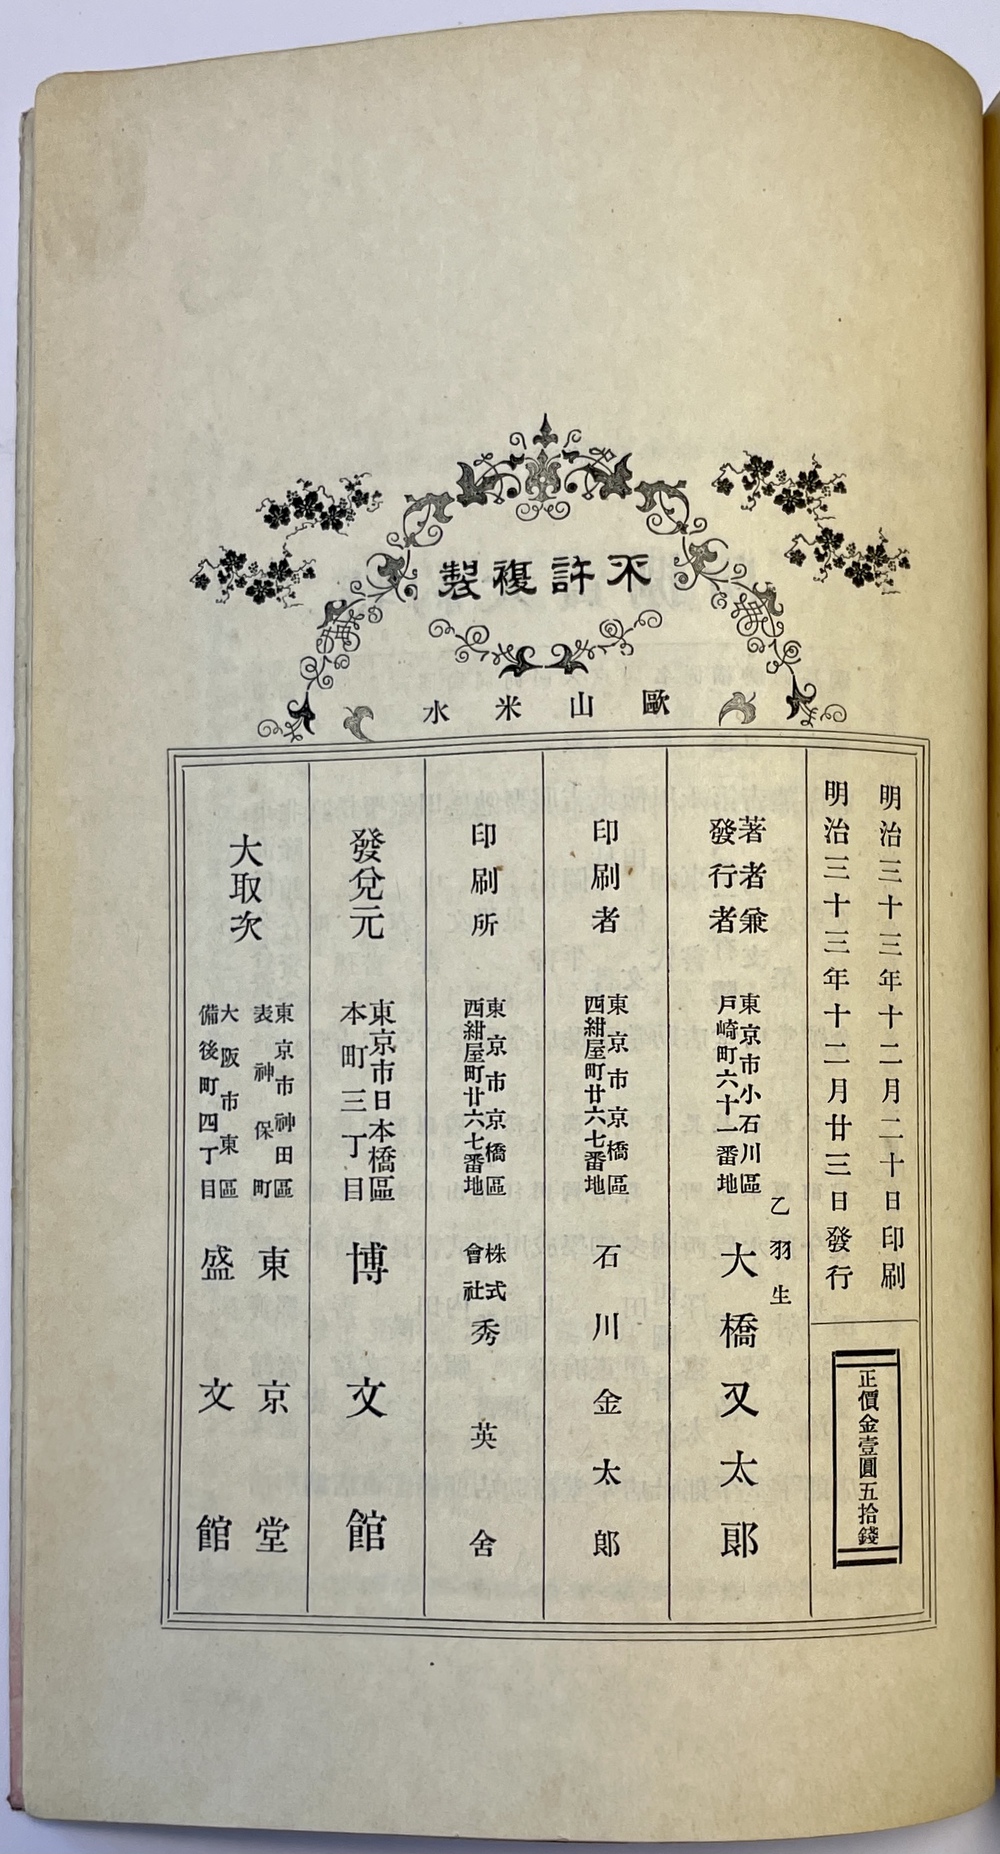 不許複製
歐山米水
明治三十三年十二月二十日印刷
明治三十三年十二月廿三日發行
正價金壹圓五拾錢
著者兼
發行者
東京市小石川區
戸崎町六十一番地
乙羽生
大橋又太郎
印刷者
東京市京橋區
西紺屋町廿六七番地
石川金太郎
印刷所
東京市京橋區
西紺屋町廿六七番地
株式
會社
秀英舍
發兌元
東京市日本橋區
本町三丁目
博文館
大取次
東京市神田區
表神保町
東京堂
大阪市東區
備後町四丁目
盛文館